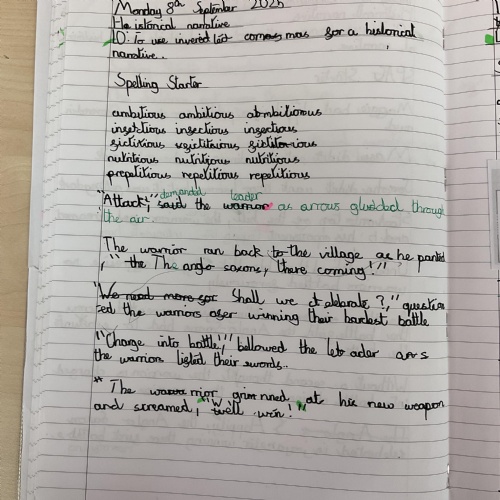 Monday 8th September 2025
Historical narrative
LO: To use inverted commas for a historical
narrative.
Spelling Starter
ambitious ambitious abmbitiorous
insectious insectious insectious
nutritious nutritious nutritious
prepetitious repetitious repetitious
demanded leader
"Attack," said the warrior as arrows glidded through
the air.
The warrior ran back to the village as he panted
, " the The anglo saxons, there coming!"
"We need more for Shall we celebrate?," question
ed the warriors after winning their hardest battle
"Charge into battle!" bellowed the leader as
the warriors listed their swords.
* The warrior grinned at his new weapon
and screamed, "Well win!"